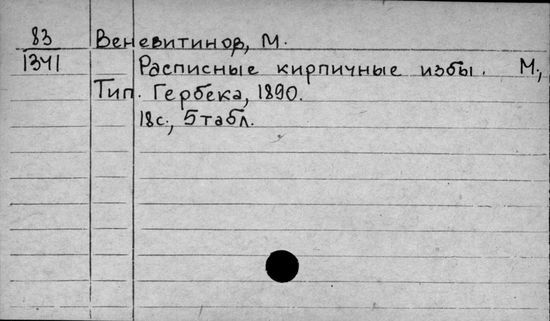 83 Веневитинов, М.
1341 Расписные кирпичные избы. М,
Тип. Гербека, 1890.
18с., 5 табл.